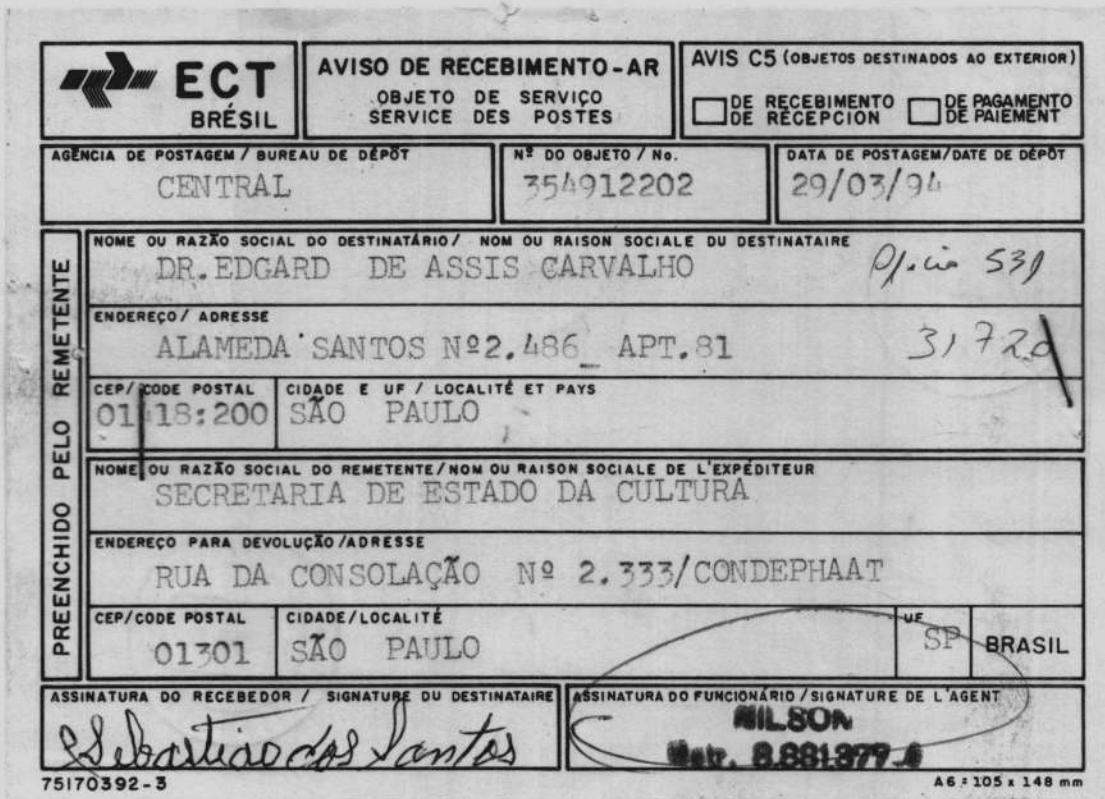 ECT
BRÉSIL
AVISO DE RECEBIMENTO-AR
OBJETO DE SERVIÇO
SERVICE DES POSTES
AVIS C5 (OBJETOS DESTINADOS AO EXTERIOR)
DE RECEBIMENTO
DE RÉCEPCION
DE PAGAMENTO
DE PAIEMENT
AGÊNCIA DE POSTAGEM / BUREAU DE DÉPÔT
CENTRAL
Nº DO OBJETO / No.
354912202
DATA DE POSTAGEM/DATE DE DÉPÔT
29/03/94
PREENCHIDO PELO REMETENTE
NOME OU RAZÃO SOCIAL DO DESTINATÁRIO / NOM OU RAISON SOCIALE DU DESTINATAIRE
DR.EDGARD DE ASSIS CARVALHO
ENDEREÇO / ADRESSE
ALAMEDA SANTOS Nº2.486 APT.81
CEP/CODE POSTAL
01418:200
CIDADE E UF / LOCALITÉ ET PAYS
SÃO PAULO
NOME OU RAZÃO SOCIAL DO REMETENTE/NOM OU RAISON SOCIALE DE L'EXPÉDITEUR
SECRETARIA DE ESTADO DA CULTURA
ENDEREÇO PARA DEVOLUÇÃO/ADRESSE
RUA DA CONSOLAÇÃO Nº 2.333/CONDEPHAAT
CEP/CODE POSTAL
01301
CIDADE/LOCALITÉ
SÃO PAULO
UF
SP
BRASIL
ASSINATURA DO RECEBEDOR / SIGNATURE DU DESTINATAIRE
Sebastiao dos Santos
ASSINATURA DO FUNCIONÁRIO/SIGNATURE DE L'AGENT
NILSON
Matr. 8.881.377-
75170392-3
A6 = 105 x 148 mm